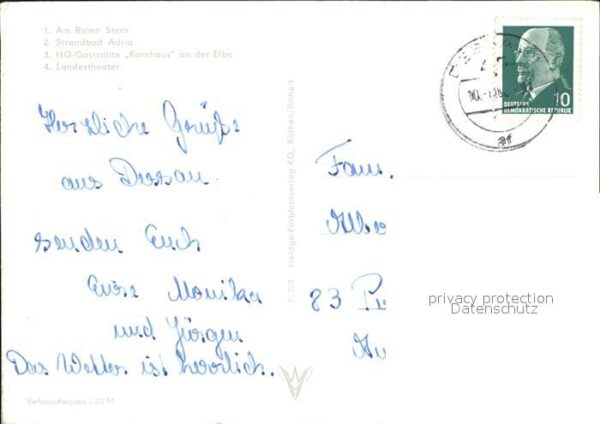 1. Am Roten Stern
2. Strandbad Adria
3. HO-Gaststätte „Kornhaus" an der Elbe
4. Landestheater
DEUTSCHE
DEMOKRATISCHE REPUBLIK
10
Herzliche Grüße
aus Dessau
senden Euch
Eure Monika
und Jürgen
Das Wetter ist herrlich.
Fam.
83
privacy protection
Datenschutz
F 708 Heldge-Farbfotoverlag KG, Köthen/Anhalt
Verbraucherpreis - 20 M